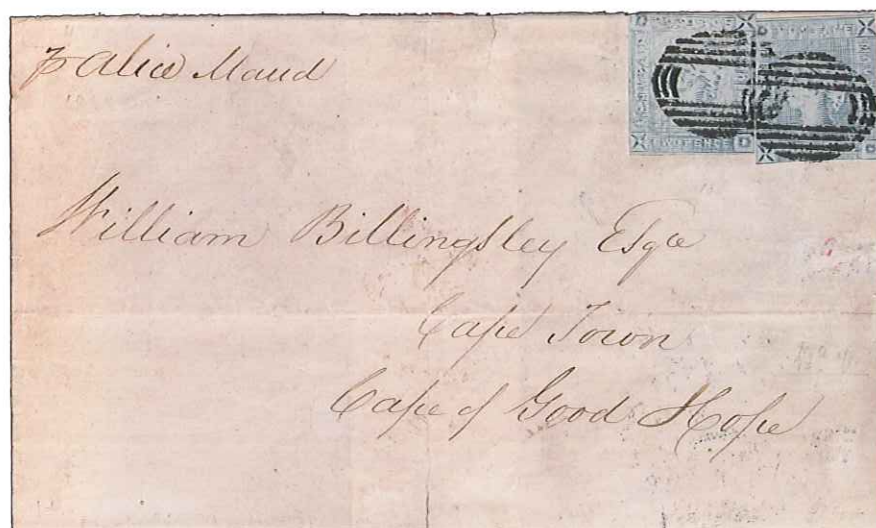 TWO PENCE
p Alice Maud
TWO PENCE
William Billingsley Esqre
Cape Town
Cape of Good Hope